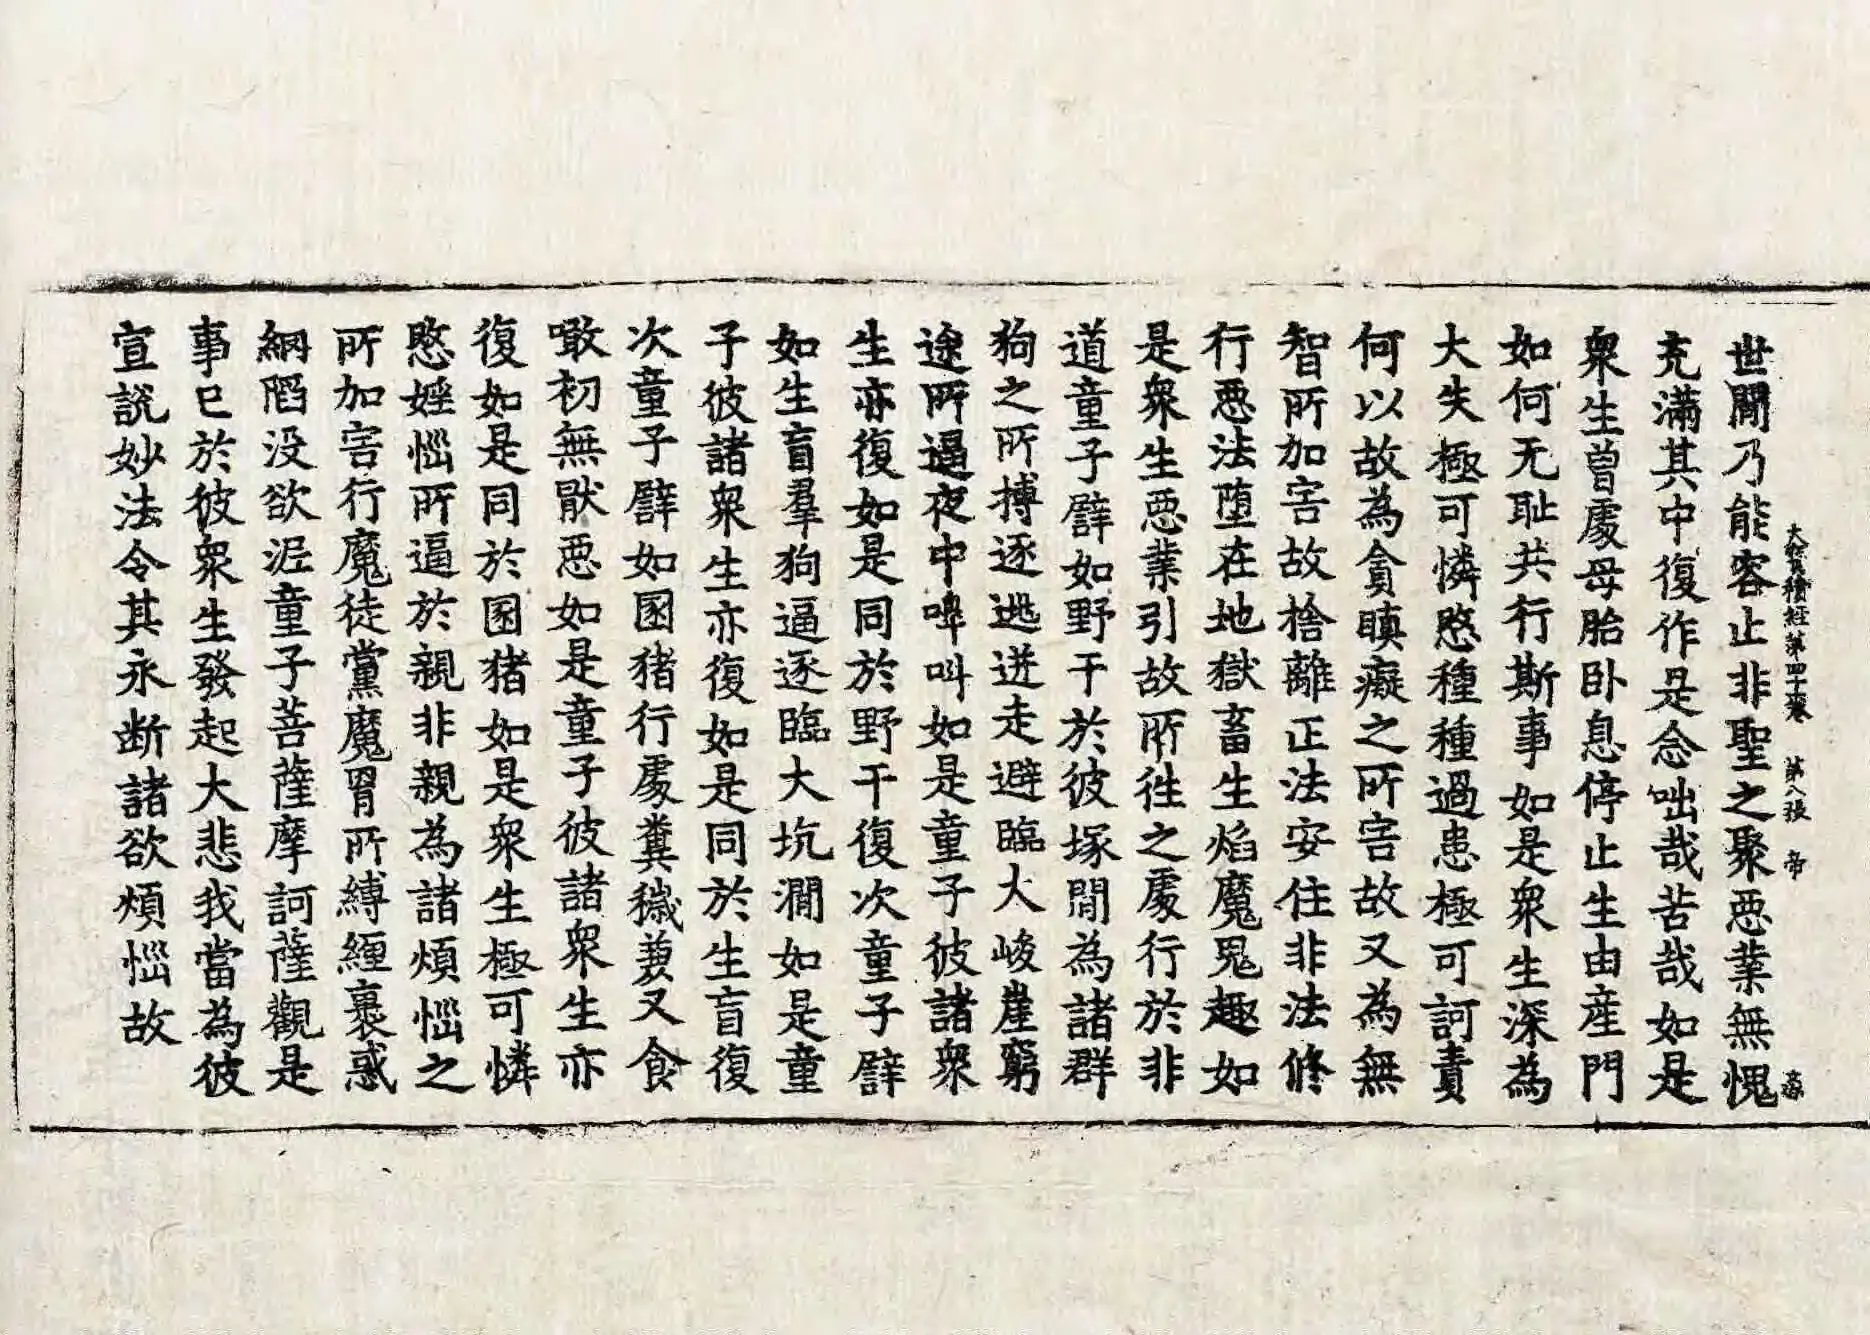 大寶積經第四十卷 第八張 帝
世間乃能容止非聖之聚惡業無愧
充滿其中復作是念咄哉苦哉如是
衆生曾處母胎卧息停止生由産門
如何无耻共行斯事如是衆生深為
大失極可憐愍種種過患極可訶責
何以故為貪瞋癡之所害故又為無
智所加害故捨離正法安住非法修
行惡法墮在地獄畜生焰魔鬼趣如
是衆生惡業引故所徃之處行於非
道童子譬如野干於彼塚間為諸群
狗之所搏逐逃迸走避臨大峻崖窮
途所逼夜中嘷叫如是童子彼諸衆
生亦復如是同於野干復次童子譬
如生盲羣狗逼逐臨大坑澗如是童
子彼諸衆生亦復如是同於生盲復
次童子譬如圂猪行處糞穢兼又食
噉初無猒惡如是童子彼諸衆生亦
復如是同於圂猪如是衆生極可憐
愍婬惱所逼於親非親為諸煩惱之
所加害行魔徒黨魔罥所縛纒裹惑
網陷没欲泥童子菩薩摩訶薩觀是
事已於彼衆生發起大悲我當為彼
宣説妙法令其永断諸欲煩惱故